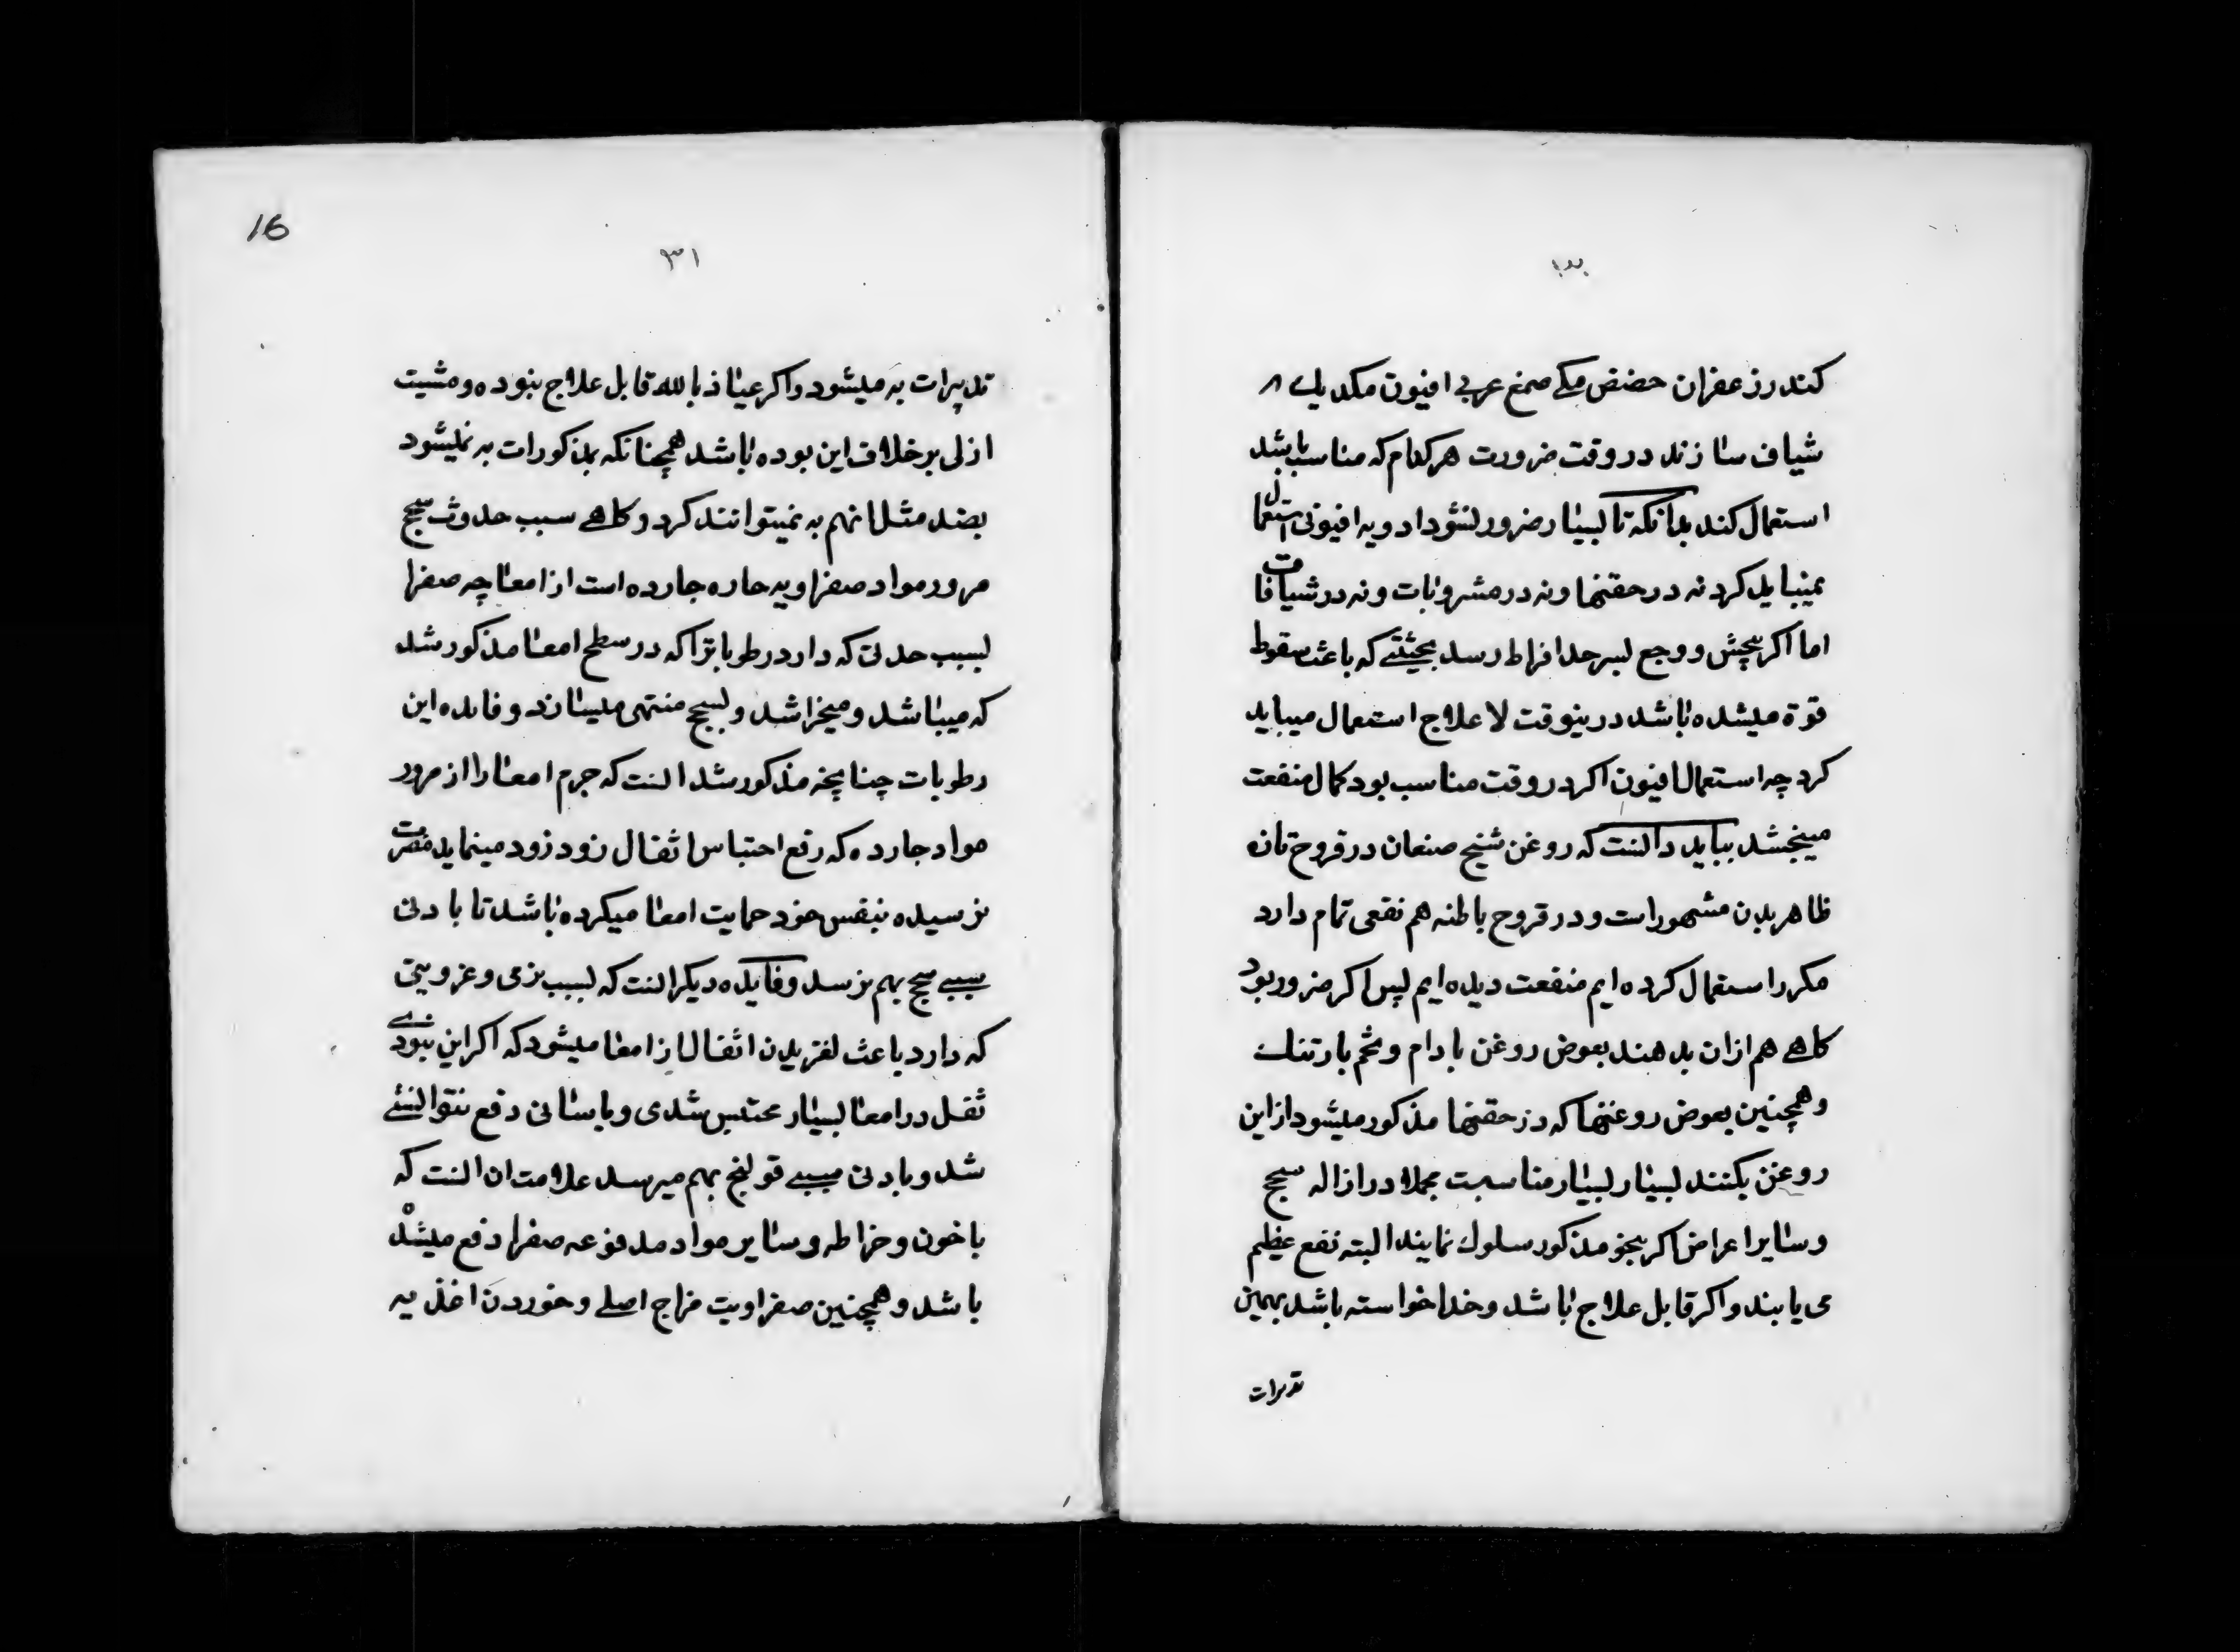 ۳۰
کندر زعفران حضض مکی صمغ عربی افیون مکد یك ۸
شیاف سازند در وقت ضرورت هر کدام که مناسب باشد
استعمال کند بدانکه تا بسیار ضرور نشود ادویه افیونی استعمال
نمیباید کرد نه در حقنها و نه در مشروبات و نه در شیافات
اما اکر پیچش و وجع بسر حد افراط رسد بحیثیتی که باعث سقوط
قوة میشده باشد درینوقت لا علاج استعمال میباید
کرد چه استعمال افیون اکر در وقت مناسب بود کمال منفعت
میبخشد بباید دانست که روغن شیخ صنعان در قروح تازه
ظاهر بدن مشهور است و در قروح باطنه هم نفعی تمام دارد
مکرر استعمال کرده ایم منفعت دیده ایم پس اکر ضرور بود
کاهی هم ازان بدهند بعوض روغن بادام و تخم بارتنك
و همچنین بعوض روغنها که در حقنها مذکور میشود از این
روغن بکنند بسیار بسیار مناسبت مجملا در ازاله سحج
و سایر اعراض اکر بنحو مذکور سلوك نمایند البته نفع عظیم
می یابند و اکر قابل علاج باشد و خدا خواسته باشد بهمین
تدبیرات
16
۳۱
تدبیرات به میشود و اکر عیاذا بالله قابل علاج نبوده و مشیت
ازلی بر خلاف این بوده باشد همچنانکه بمذکورات به نمیشود
بصد مثل انهم به نمیتوانند کرد و کاهی سبب حدوث سحج
مرور مواد صفراویه حاره جارده است از امعا چه صفرا
بسبب حدتی که دارد رطوباترا که در سطح امعا مذکور شد
که میباشد و میخراشد و بسحج منتهی میسازد و فایده این
رطوبات چنانچه مذکور شد انست که جرم امعا را از مرور
مواد جارده که رفع احتباس اثفال زود زود مینماید مضرت
نرسیده بنفس خود حمایت امعا میکرده باشد تا بادنی
سببی سحج بهم نرسد و فایده دیکر انست که بسبب نرمی و غرویتی
که دارد باعث لغزیدن اثفال از امعا میشود که اکر این نبودی
ثفل در امعا بسیار محتبس شدی و باسانی دفع نتوانستی
شد و بادنی سببی قولنج بهم میرسد علامت ان انست که
با خون و خراطه و سایر مواد مدفوعه صفرا دفع میشده
باشد و همچنین صفراویت مزاج اصلی و خوردن اغذیه